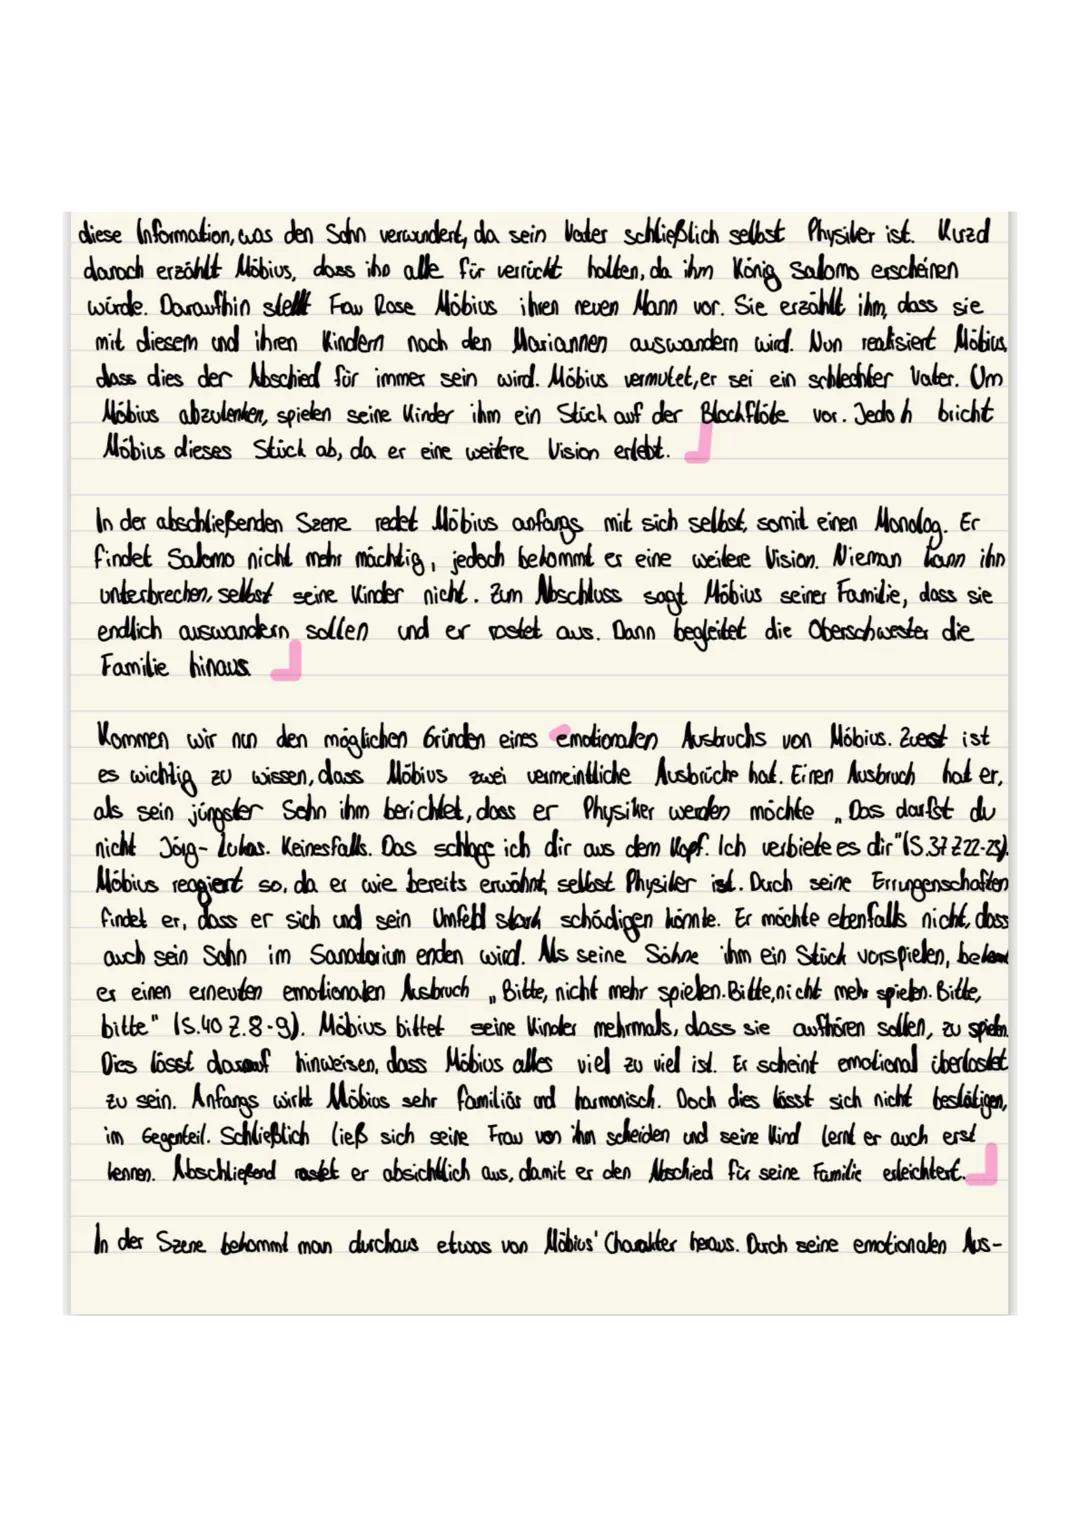 diese Information, was den Sohn verwundert, da sein Vater schließlich selbst Physiker ist. Kurzd
danach erzählt Möbius, dass ihn alle für verrückt halten, da ihm König Salomo erscheinen
würde. Daraufhin stellt Frau Rose Möbius ihren neuen Mann vor. Sie erzählt ihm, dass sie
mit diesem und ihren Kindern nach den Mariannen auswandern wird. Nun realisiert Möbius,
dass dies der Abschied für immer sein wird. Möbius vermutet, er sei ein schlechter Vater. Um
Möbius abzulenken, spielen seine Kinder ihm ein Stück auf der Blockflöte vor. Jedo h bricht
Möbius dieses Stück ab, da er eine weitere Vision erlebt.
In der abschließenden Szene redet Möbius anfangs mit sich selbst, somit einen Monolog. Er
findet Salomo nicht mehr mächtig, jedoch bekommt er eine weitere Vision. Nieman kann ihn
unterbrechen, selbst seine Kinder nicht. Zum Abschluss sagt Möbius seiner Familie, dass sie
endlich auswandern sollen und er rastet aus. Dann begleitet die Oberschwester die
Familie hinaus.
Kommen wir nun den möglichen Gründen eines emotionalen Ausbruchs von Möbius. Zuerst ist
es wichtig zu wissen, dass Möbius zwei vermeintliche Ausbrüche hat. Einen Ausbruch hat er,
als sein jüngster Sohn ihm berichtet, dass er Physiker werden möchte „Das darfst du
nicht Jörg-Lukas. Keinesfalls. Das schlage ich dir aus dem Kopf. Ich verbiete es dir" (S.37 Z.22-23).
Möbius reagiert so, da er wie bereits erwähnt, selbst Physiker ist. Durch seine Errungenschaften
findet er, dass er sich und sein Umfeld stark schädigen könnte. Er möchte ebenfalls nicht, dass
auch sein Sohn im Sanatorium enden wird. Als seine Söhne ihm ein Stück vorspielen, bekommt
er einen erneuten emotionalen Ausbruch „Bitte, nicht mehr spielen. Bitte, nicht mehr spielen. Bitte,
bitte" (S.40 Z.8-9). Möbius bittet seine Kinder mehrmals, dass sie aufhören sollen, zu spielen.
Dies lässt darauf hinweisen, dass Möbius alles viel zu viel ist. Er scheint emotional überlastet
zu sein. Anfangs wirkt Möbius sehr familiär und harmonisch. Doch dies lässt sich nicht bestätigen,
im Gegenteil. Schließlich ließ sich seine Frau von ihm scheiden und seine Kind lernt er auch erst
kennen. Abschließend rastet er absichtlich aus, damit er den Abschied für seine Familie erleichtert.
In der Szene bekommt man durchaus etwas von Möbius' Charakter heraus. Durch seine emotionalen Aus-